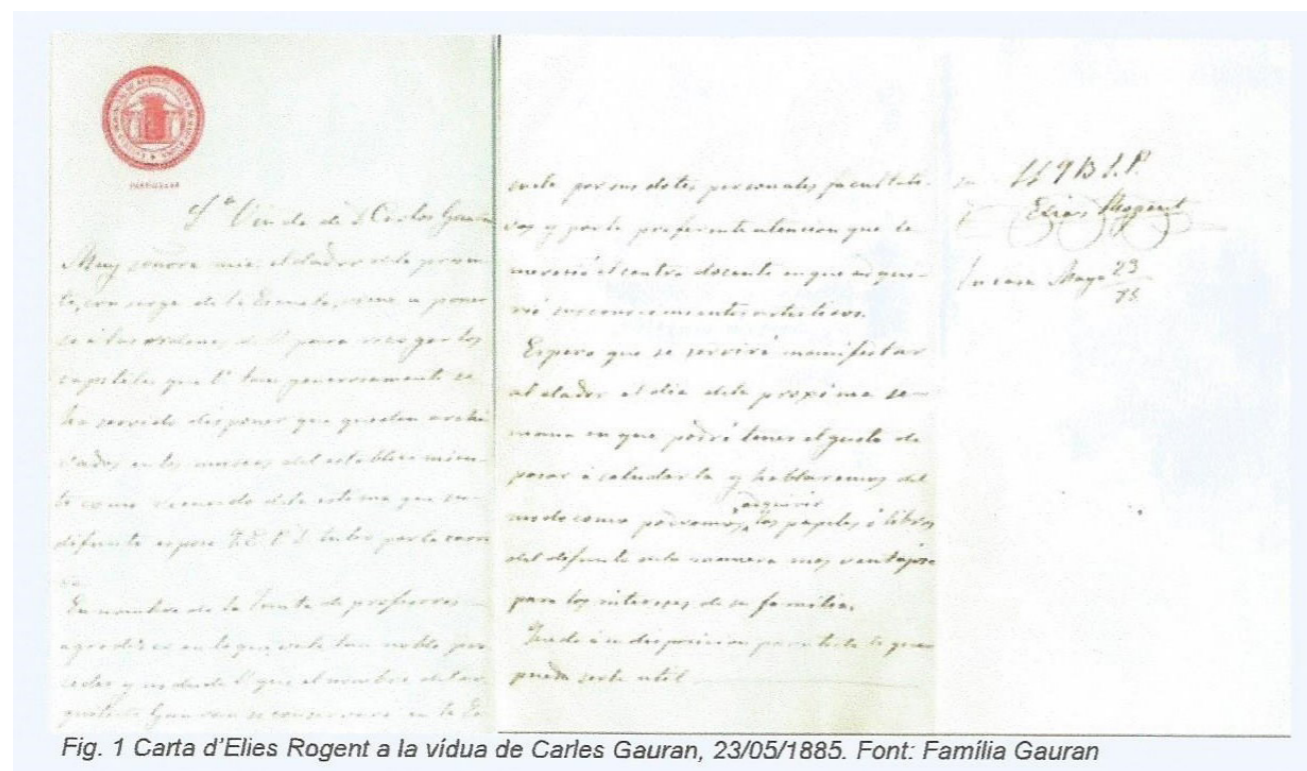 PARTICULAR
Sª Viuda de D Carlos Gauran
Muy señora mia: el dador de la presen-
te, conserge de la Escuela, viene a poner
se á las ordenes de V para recoger los
capiteles que V. tan generosamente se
ha servido disponer que queden archi
vados en los museos del establecimien-
to como recuerdo de la estima que su
difunto esposo
En nombre de la Junta de profesores
agradezco en lo que vale tan noble pro
ceder y no dude V. que el nombre del ar
quitecto Gauran se conservará en la Es
cuela por sus dotes personales facultati-
vas y por la preferente atencion que le
mereció el centro docente en que adqui-
rió sus conocimientos artisticos.
Espero que se servirá manifestar
al dador el dia de la proxima se-
mana en que podré tener el gusto de
pasar á saludarla y hablaremos del
modo como podremos adquirir los papeles ó libros
del difunto de la manera mas ventajosa
para los intereses de su familia.
Queda á su disposicion para todo lo que
pueda serle util
Elias Rogent
Su casa Mayo 23
Fig. 1 Carta d'Elies Rogent a la vídua de Carles Gauran, 23/05/1885. Font: Família Gauran